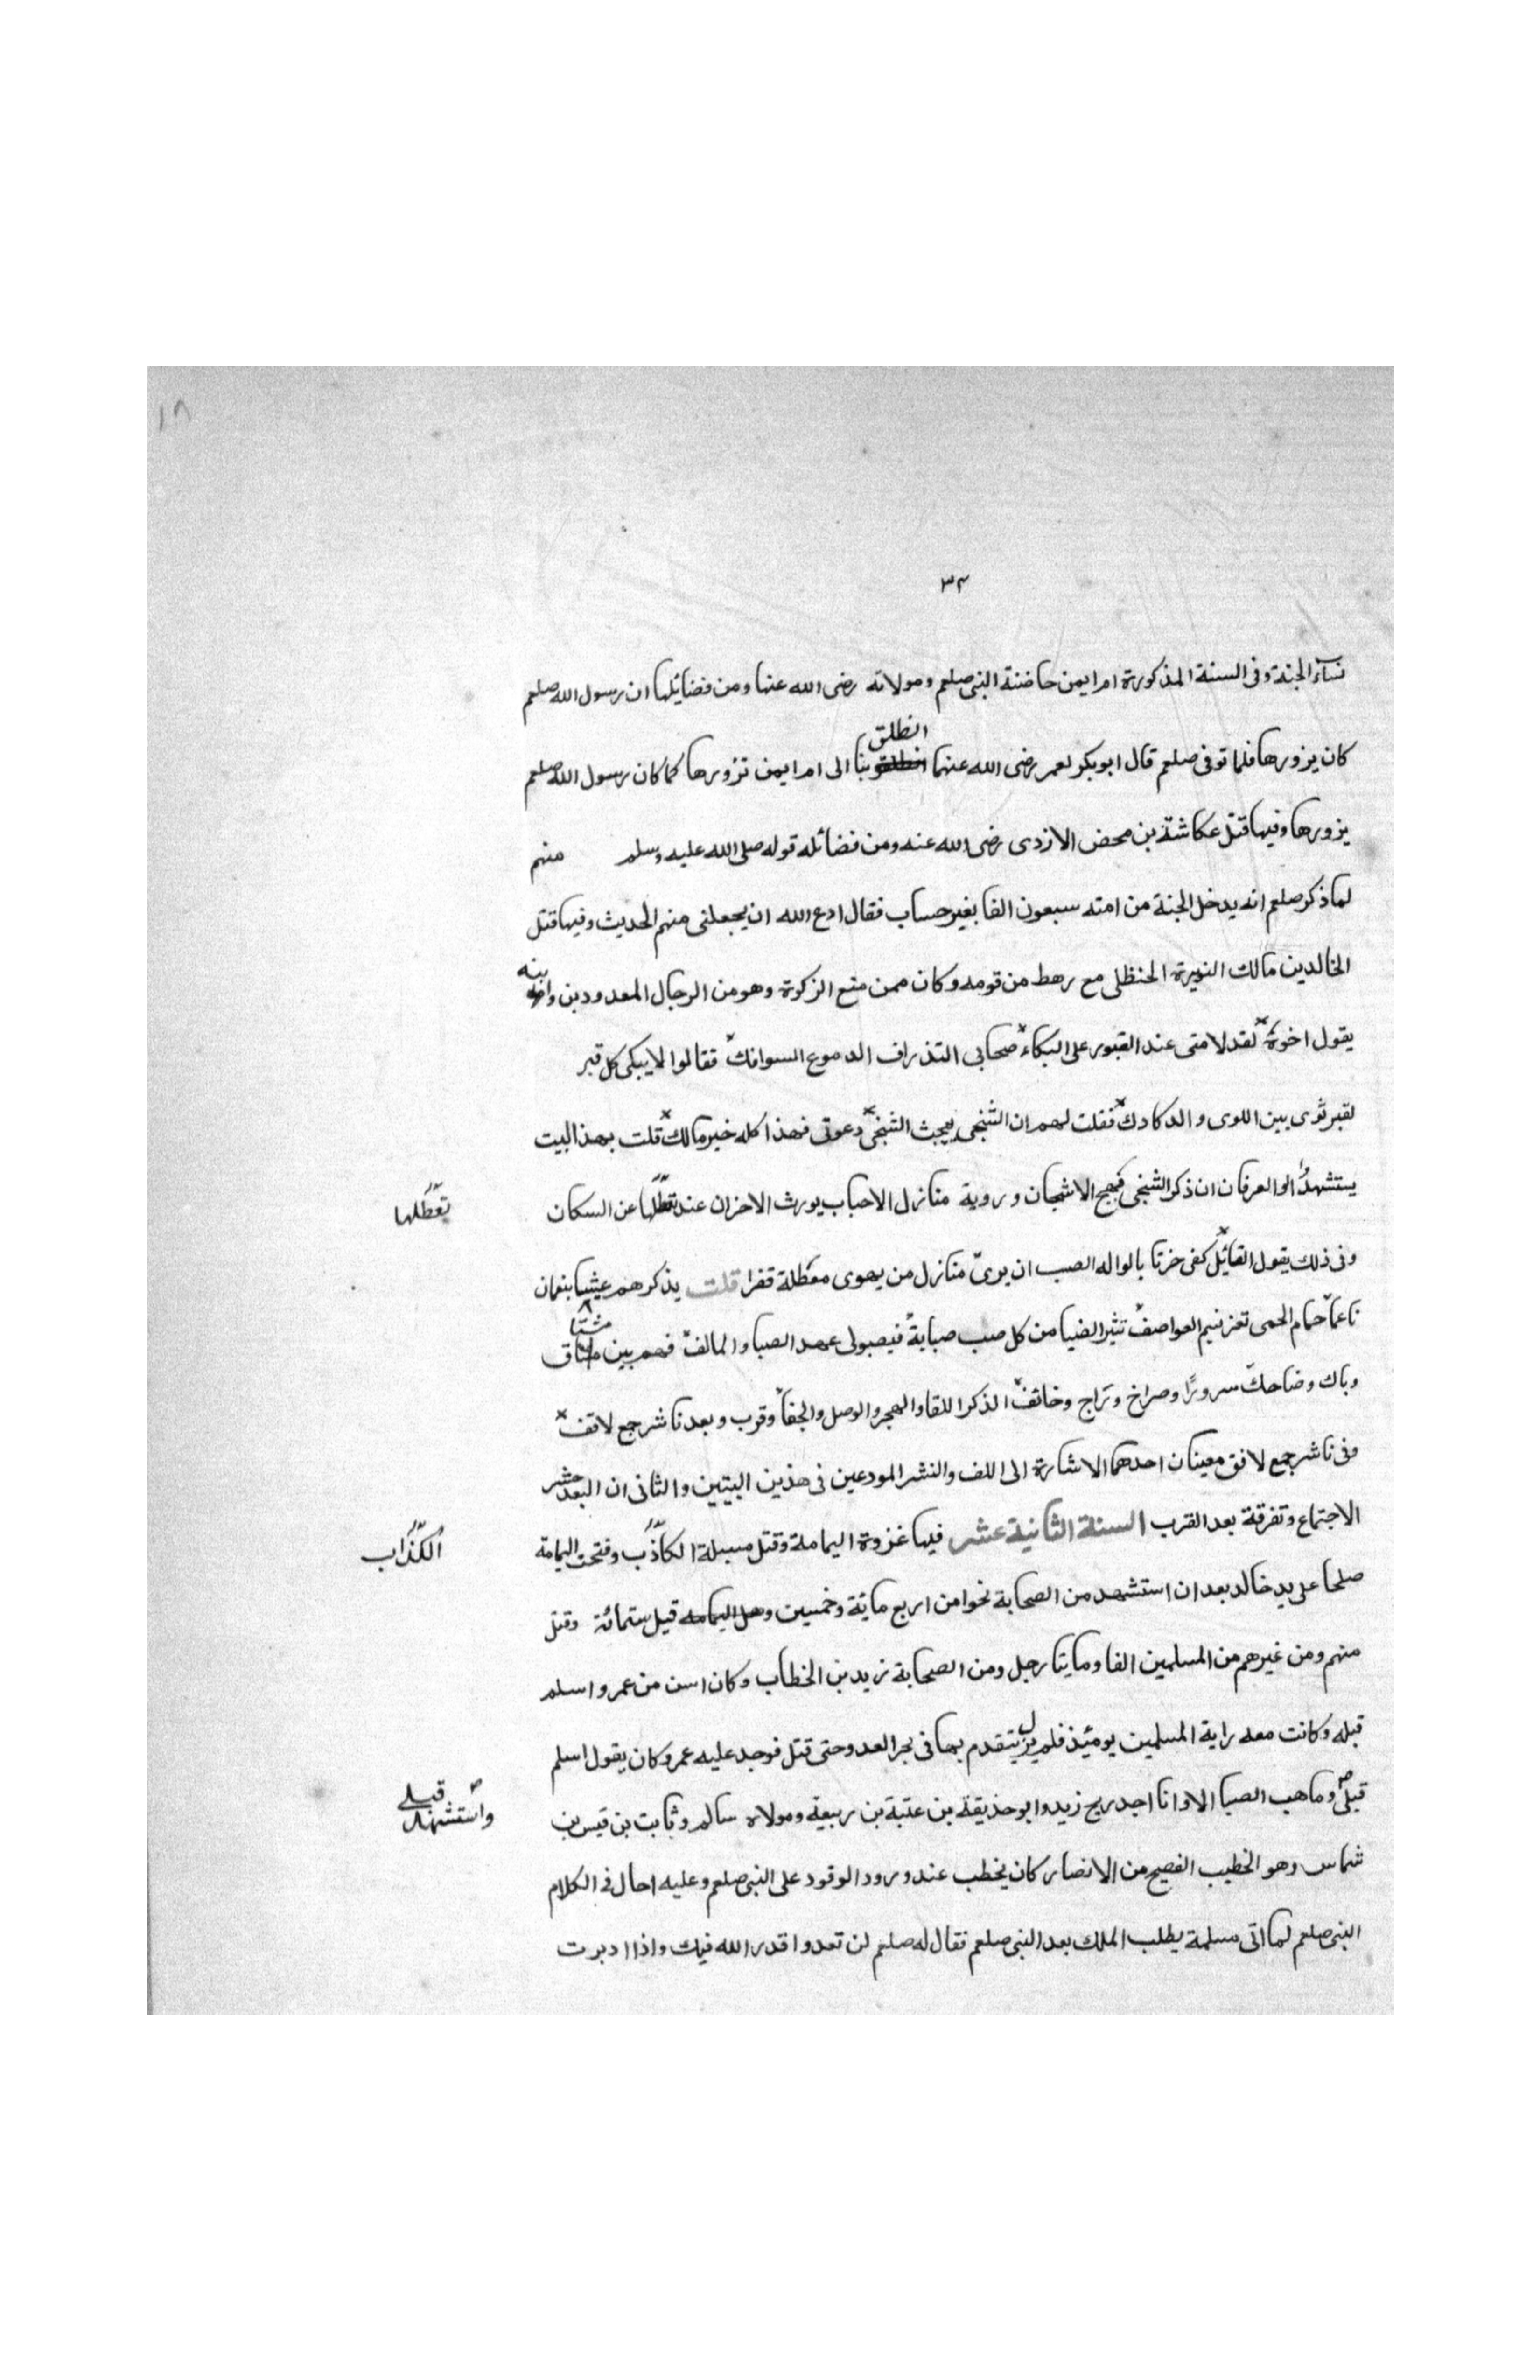 ١٨
٣٤
نسآء الجنة وفى السنة المذكورة ام ايمن حاضنة النبى صلعم ومولاته رضى الله عنها ومن فضائلها ان رسول الله صلعم
انطلق
كان يزورها فلما توفى صلعم قال ابوبكر لعمر رضى الله عنهما بنا الى ام ايمن نزورها كما كان رسول الله صلعم
يزورها وفيها قتل عكاشة بن محض الازدى رضى الله عنه ومن فضائله قوله صلى الله عليه وسلم منهم
لما ذكر صلعم انه يدخل الجنة من امته سبعون الفا بغير حساب فقال ادع الله ان يجعلنى منهم الحديث وفيها قتل
الخالدين مالك النويرة الحنظلى مع رهط من قومه وكان ممن منع الزكوة وهو من الرجال المعدودين
يقول اخوة لقد لامتى عند القبور على البكاء صحابى التذراف الدموع السوافك فقالوا لايبكى كل قبر
لقبر ثوى بين اللوى والدكادك فقلت لهم ان الشجى يبعث الشجى دعوتى فهذا كله خير مالك قلت بهذا البيت
يستشهد اولوا العرفان ان ذكر الشجى فهيج الاشجان وروية منازل الاحباب يورث الاحزان عند تعطلها عن السكان
تعطلها
وفى ذلك يقول القائل كفى حزنا بالواله الصب ان يرى منازل من يهوى معطلة قفرا قلت يذكرهم عيشا بنعمان
ناعما حمام الحمى تعز نسيم العواصف تثير الضبا من كل صب صبابة فيصبو لى عهد الصبا والمالف فهم بين مشتاق
وباك وضاحك سرورًا وصراخ وتراج وخائف الذكر اللقا والهجر والوصل والجفا وقرب وبعد ناشر جمع لاقف
وفى ناشر جمع لافق معينان احدهما الاشارة الى اللف والنشر المودعين فى هذين البيتين والثانى ان البعد حشر
الاجتماع وتفرقة بعد القرب السنة الثانية عشر فيها غزوة اليمامة وقتل مسيلة الكاذب وفتحت اليمامة
الكذاب
صلحا على يد خالد بعد ان استشهد من الصحابة نحوا من اربع ماية وخمسين وهل اليمامه قيل ستمائة وقتل
منهم ومن غيرهم من المسلمين الفا ومايتا رجل ومن الصحابة زيد بن الخطاب وكان اسن من عمر واسلم
قبله وكانت معه راية المسلمين يومئذ فلم يزل يتقدم بها فى نحر العدو حتى قتل فوجد عليه عمر وكان يقول اسلم
قبلى وما هب الصبا الا وانا اجد ريح زيد وابو حذيقة بن عتبة بن ربيعة ومولاه سالم وثابت بن قيس بن
قبلى
واستشهد
شماس وهو الخطيب الفصيح من الانصار كان يخطب عند ورود الوقود على النبى صلعم وعليه احال فى الكلام
النبى صلعم لما اتى مسلمة يطلب الملك بعد النبى صلعم فقال له صلعم لن تعدوا قدر الله فيك واذا ادبرت